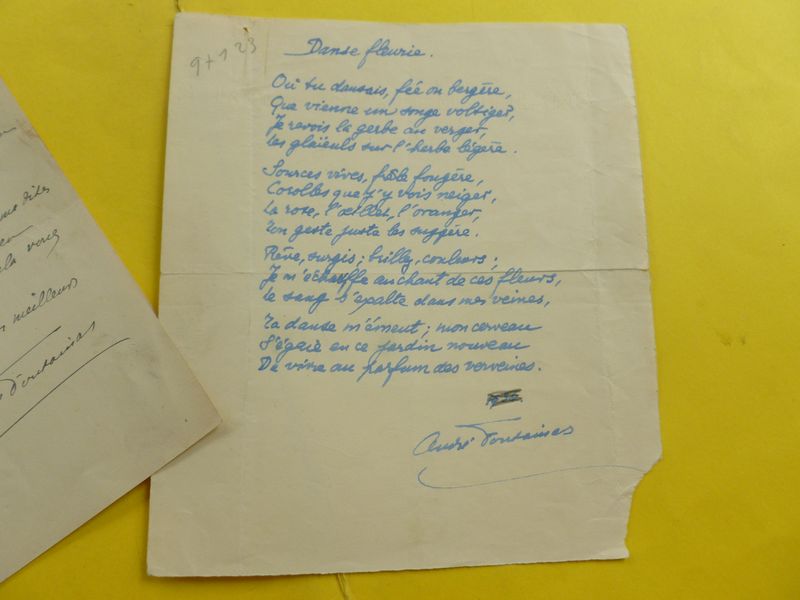 9+1 23
Danse fleurie.
Où tu dansais, fée ou bergère,
Que vienne un songe voltiger,
Je revois la gerbe au verger,
Les glaïeuls sur l'herbe légère.
Sources vives, frêle fougère,
Corolles que j'y vois neiger,
La rose, l'œillet, l'oranger,
Ton geste juste les suggère.
Rêve, surgis ; brillez, couleurs ;
Je m'échauffe au chant de ces fleurs,
Le sang s'exalte dans mes veines,
Ta danse m'émeut ; mon cerveau
S'égaie en ce jardin nouveau
De vivre au parfum des verveines.
André Fontainas
meilleurs
Fontainas